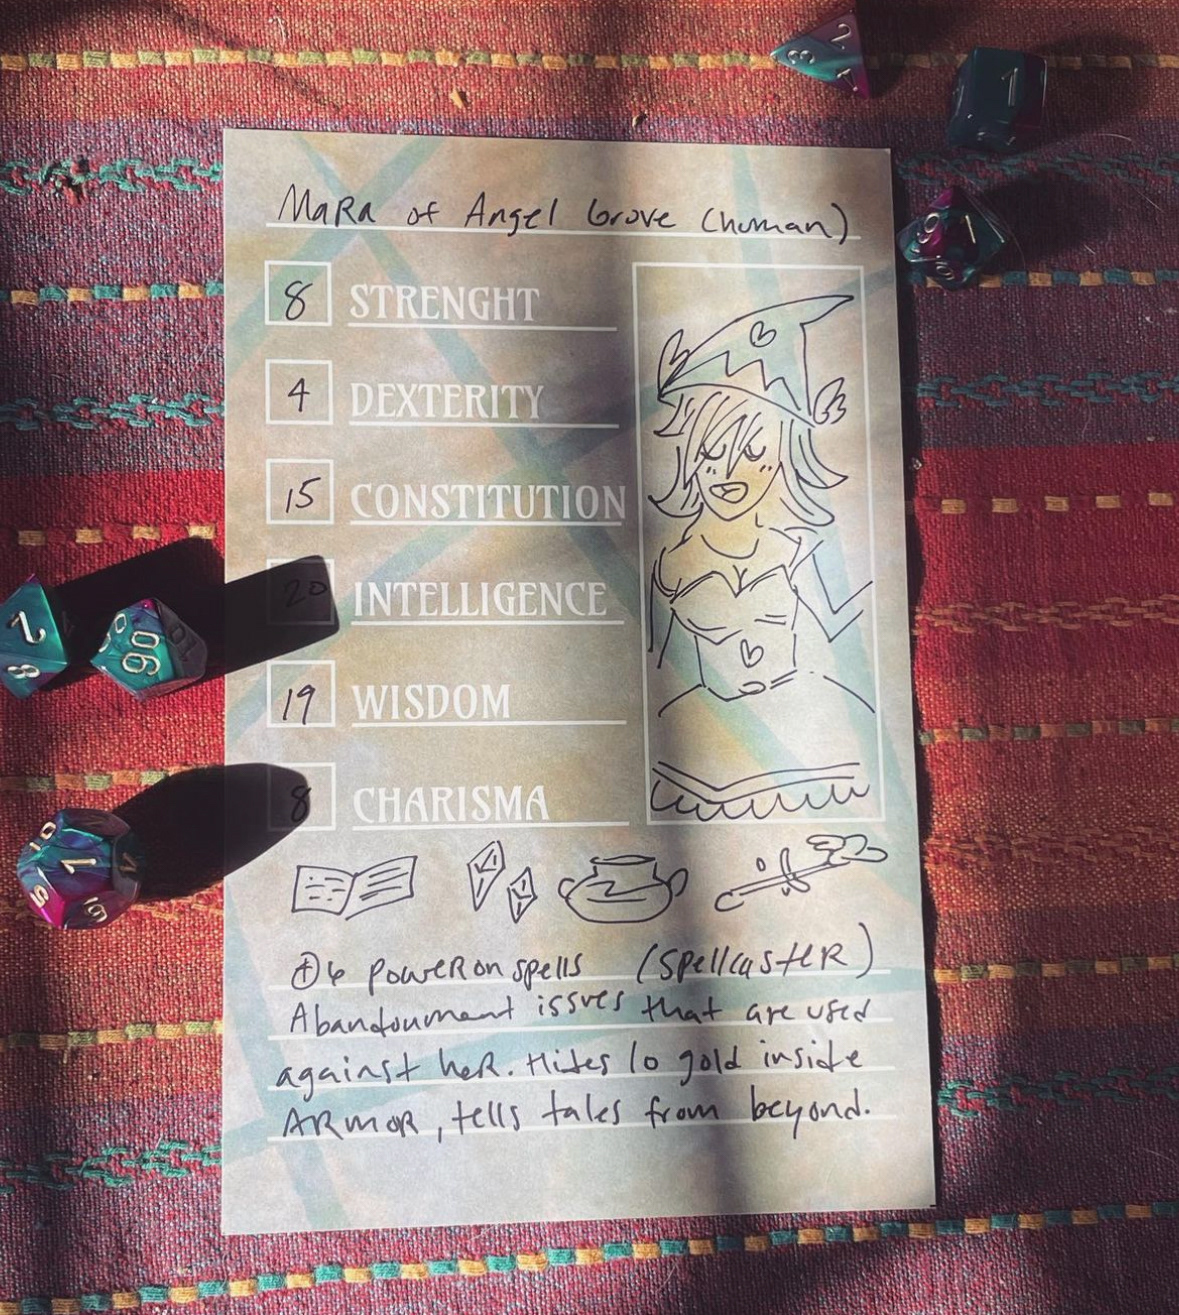 MaRa of Angel Grove (human)
8 STRENGHT
4 DEXTERITY
15 CONSTITUTION
20 INTELLIGENCE
19 WISDOM
8 CHARISMA
+6 poweR on spells (spellcasteR)
Abandounment issues that are used
against heR. Hides 10 gold inside
ARmoR, tells tales from beyond.
2
3
1
1
1
2
8
90
10
1
19